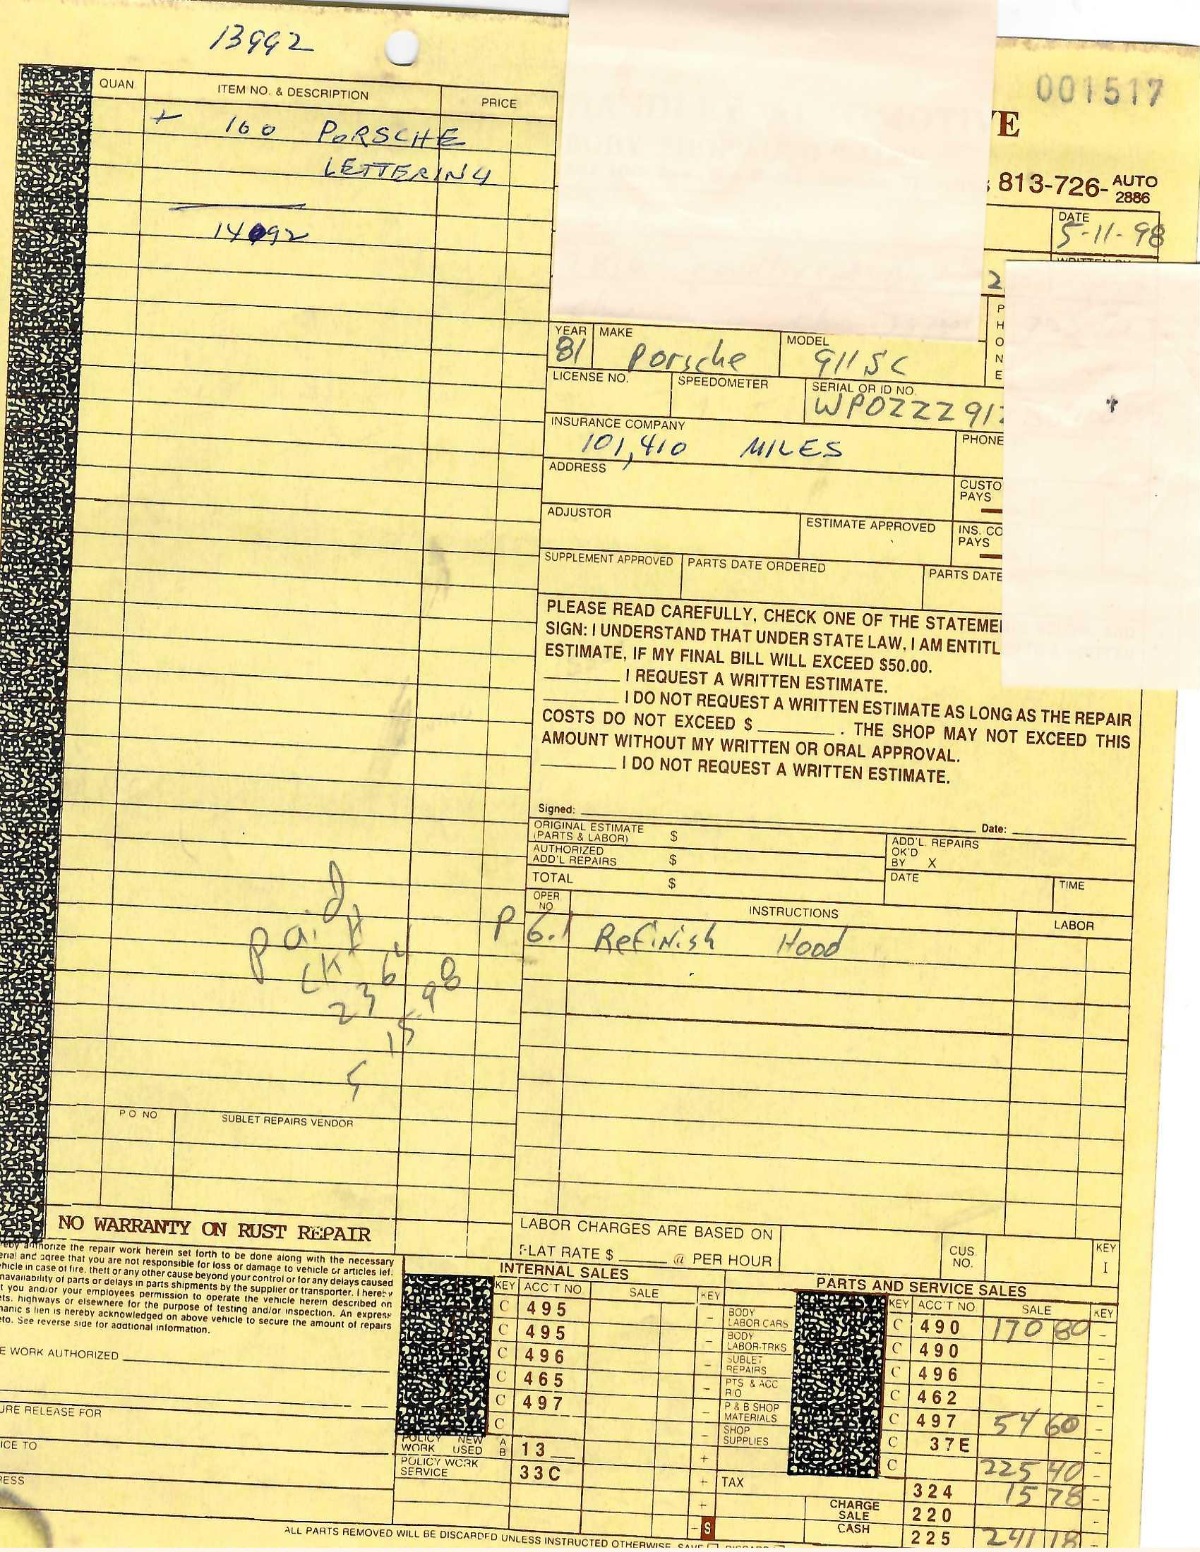 13992
001517
QUAN. ITEM NO. & DESCRIPTION PRICE
+ 160 PORSCHE
LETTERING
14092
813-726-AUTO
2886
DATE
5-11-98
2
P
H
O
N
E
YEAR MAKE MODEL
81 Porsche 911SC
LICENSE NO. SPEEDOMETER SERIAL OR ID NO.
WPOZZZ91
INSURANCE COMPANY PHONE
101,410 MILES
ADDRESS
CUSTO
PAYS
ADJUSTOR ESTIMATE APPROVED INS. CO
PAYS
SUPPLEMENT APPROVED PARTS DATE ORDERED PARTS DATE
PLEASE READ CAREFULLY, CHECK ONE OF THE STATEME
SIGN: I UNDERSTAND THAT UNDER STATE LAW, I AM ENTITL
ESTIMATE, IF MY FINAL BILL WILL EXCEED $50.00.
I REQUEST A WRITTEN ESTIMATE.
I DO NOT REQUEST A WRITTEN ESTIMATE AS LONG AS THE REPAIR
COSTS DO NOT EXCEED $ . THE SHOP MAY NOT EXCEED THIS
AMOUNT WITHOUT MY WRITTEN OR ORAL APPROVAL.
I DO NOT REQUEST A WRITTEN ESTIMATE.
Signed: Date:
ORIGINAL ESTIMATE
(PARTS & LABOR) $
ADD'L. REPAIRS
OK'D
BY X
AUTHORIZED
ADD'L REPAIRS $
TOTAL $ DATE TIME
OPER
NO. INSTRUCTIONS LABOR
P 6.1 Refinish Hood
Paid
CK#
2364
5 15 98
P O NO SUBLET REPAIRS VENDOR
NO WARRANTY ON RUST REPAIR
eby authorize the repair work herein set forth to be done along with the necessary
erial and agree that you are not responsible for loss or damage to vehicle or articles left
hicle in case of fire, theft or any other cause beyond your control or for any delays caused
navailability of parts or delays in parts shipments by the supplier or transporter. I hereby
t you and/or your employees permission to operate the vehicle herein described on
ets, highways or elsewhere for the purpose of testing and/or inspection. An express
hanic s lien is hereby acknowledged on above vehicle to secure the amount of repairs
eto. See reverse side for additional information.
E WORK AUTHORIZED
URE RELEASE FOR
ICE TO
RESS
LABOR CHARGES ARE BASED ON
FLAT RATE $ @ PER HOUR
CUS.
NO.
KEY
I
INTERNAL SALES
KEY ACC'T NO. SALE KEY
C 495
C 495
C 496
C 465
C 497
C
POLICY NEW A
WORK USED B 13
POLICY WORK
SERVICE 33C
S
PARTS AND SERVICE SALES
KEY ACC'T NO. SALE KEY
BODY
LABOR CARS C 490 170 80
BODY
LABOR-TRKS C 490
SUBLET
REPAIRS C 496
PTS & ACC
R.O. C 462
P & B SHOP
MATERIALS C 497 54 60
SHOP
SUPPLIES C 37E
C 225 40
TAX 324 15 78
CHARGE
SALE 220
CASH 225 241 18
ALL PARTS REMOVED WILL BE DISCARDED UNLESS INSTRUCTED OTHERWISE.